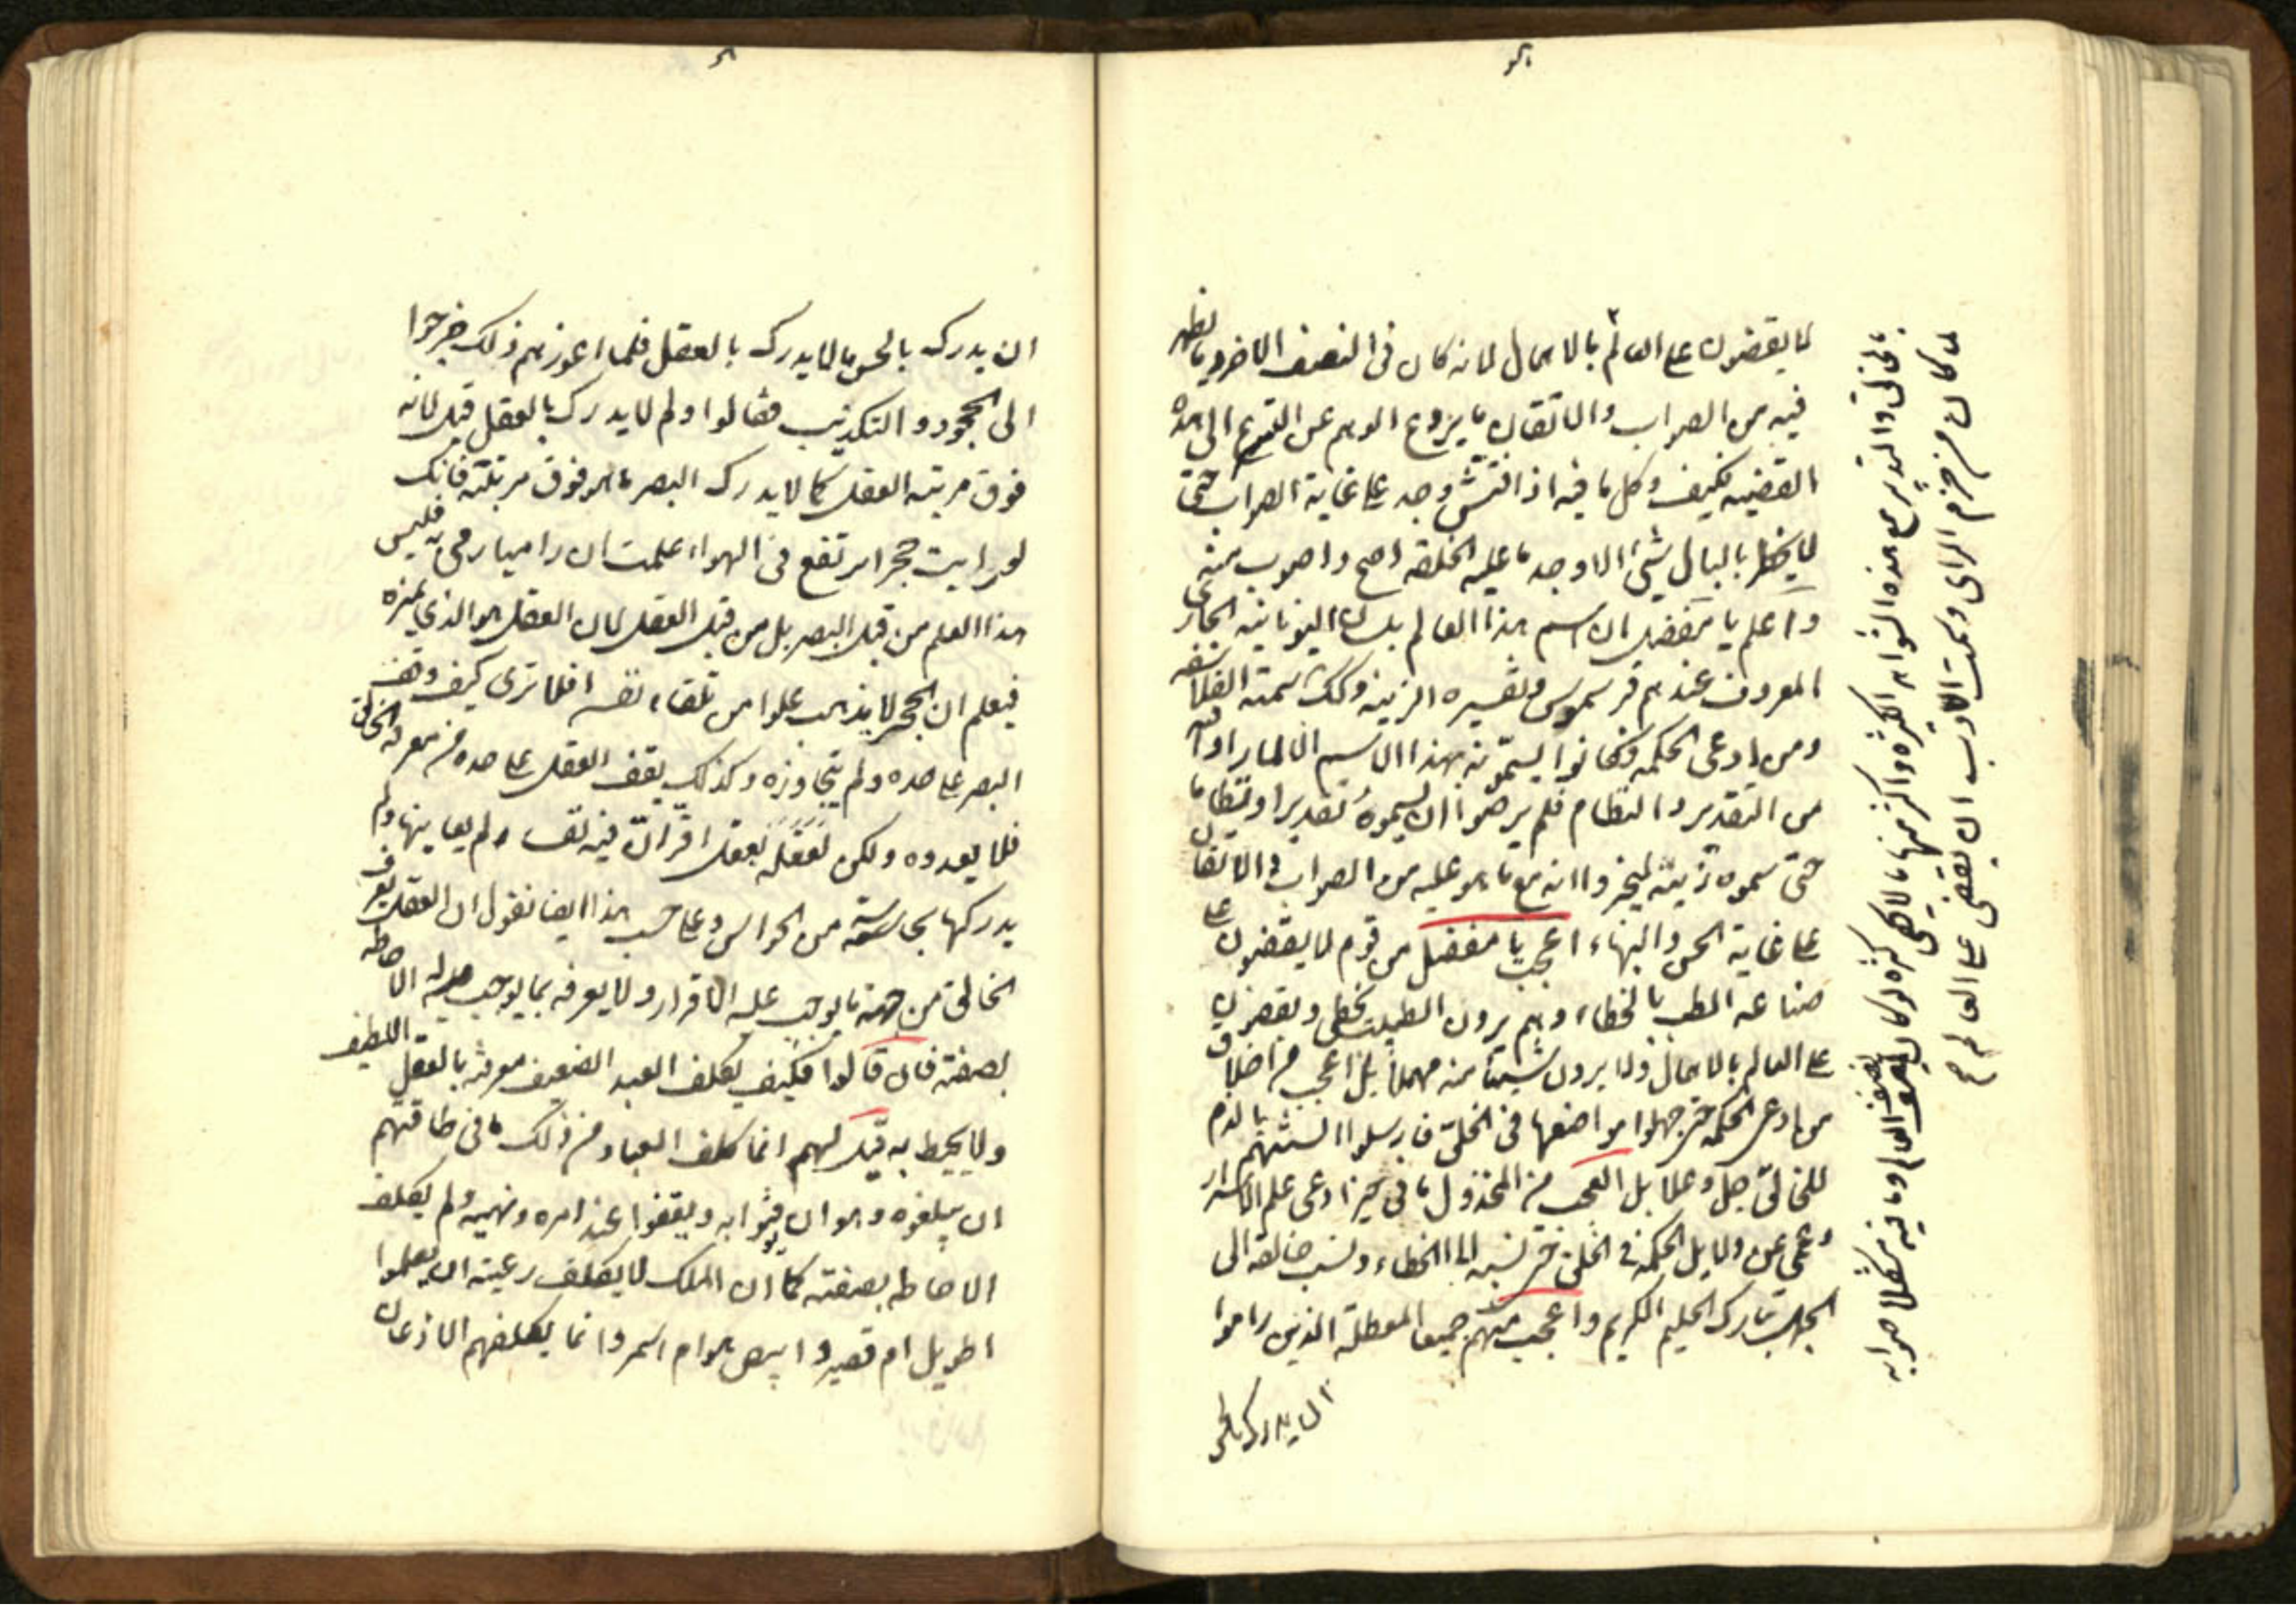 لا يقضون على العالم بالاهمال لانه كان في النصف الاخر وما يظهر
فيه من الصواب والاتقان ما يردع الوهم عن التسرع الى هذه
القضيه فكيف وكل ما فيه اذا فتش وجد على غاية الصواب حتى
لا يخطر بالبال شئ الا وجد ما عليه الخلقة اصح واصوب منه
واعلم يا مفضل ان اسم هذا العالم بلسان اليونانيه الجارى
المعروف عندهم قرسموس وتفسيره الزينه وكك سمته الفلاسفه
ومن ادعى الحكمه فكانوا يسمونه بهذا الاسم الا لما راوا فيه
من التقدير والنظام فلم يرضوا ان يسموه تقديرا ونظاما
حتى سموه زينة ليخبروا انه مع ما هو عليه من الصواب والاتقان
على غاية الحسن والبهاء اعجب يا مفضل من قوم لا يقضون على
صناعة الطب بالخطاء وهم يرون الطبيب يخطى ويقضون
على العالم بالاهمال ولا يرون شيئا منه مهملا بل اعجب من اخلاق
من ادعى الحكمة حتى جهلوا مواضعها في الخلق فارسلوا السنتهم بالذم
للخالق جل وعلا بل العجب من المخذول مانى حين ادعى علم الاسرار
وعمى عن دلايل الحكمة في الخلق حتى نسبه الى الخطاء ونسب خالقه الى
الجهل تبارك الحليم الكريم واعجب منهم جميعا المعطلة الذين راموا
ان يدرك بالحس
بالخالق والتدبير مع هذه الشواهد الكثيرة واكثر منها ما لا يحصى كثرة لو كان نصف العالم وما فيه مشكلا صوابه
لما كان من حزم الراى وسمت الادب ان يقضى على العالم
ان يدرك بالحس ما لا يدرك بالعقل فلما اعوزهم ذلك خرجوا
الى الجحود والتكذيب فقالوا ولم لا يدرك بالعقل قيل لانه
فوق مرتبة العقل كما لا يدرك البصر ما هو فوق مرتبته فانك
لو رايت حجرا مرتفع في الهواء علمت ان راميا رمى به فليس
هذا العلم من قبل البصر بل من قبل العقل لان العقل هو الذي يميزه
فيعلم ان الحجر لا يذهب علوا من تلقاء نفسه افلا ترى كيف وقف
البصر على حده ولم يتجاوزه وكذلك يقف العقل على حده من معرفة الخالق
فلا يعدوه ولكن نعقله بعقل اقر ان فيه نفسا ولم يعاينها ولم
يدركها بحاسة من الحواس وعلى حسب هذا ايضا نقول ان العقل يعرف
الخالق من جهة ما يوجب عليه الاقرار ولا يعرفه بما يوجب له الاحاطه
بصفته فان قالوا فكيف يكلف العبد الضعيف معرفته بالعقل اللطيف
ولا يحيط به قيل لهم انما كلف العباد من ذلك ما في طاقتهم
ان يبلغوه وهو ان يوقنوا به ويقفوا عند امره ونهيه ولم يكلف
الاحاطه بصفته كما ان الملك لا يكلف رعيته ان يعلموا
اطويل ام قصير وابيض هو ام اسمر وانما يكلفهم الاذعان